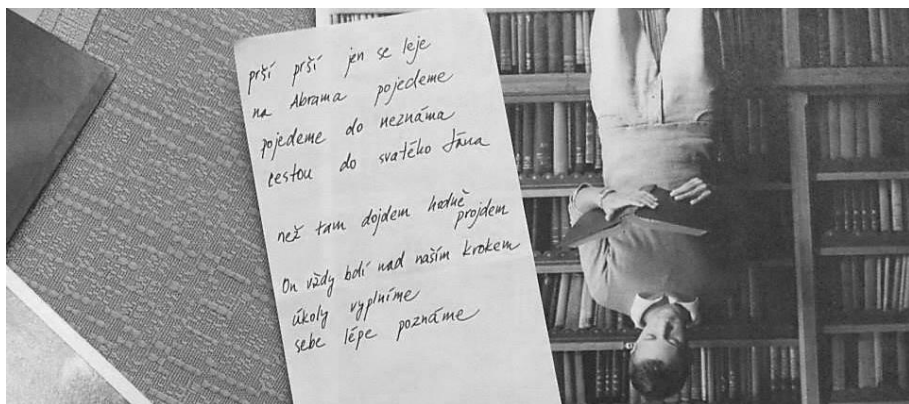 prší prší jen se leje
na Abrama pojedeme
pojedeme do neznáma
cestou do svatého Jána
než tam dojdem hodně
projdem
On vždy bdí nad naším krokem
úkoly vyplníme
sebe lépe poznáme